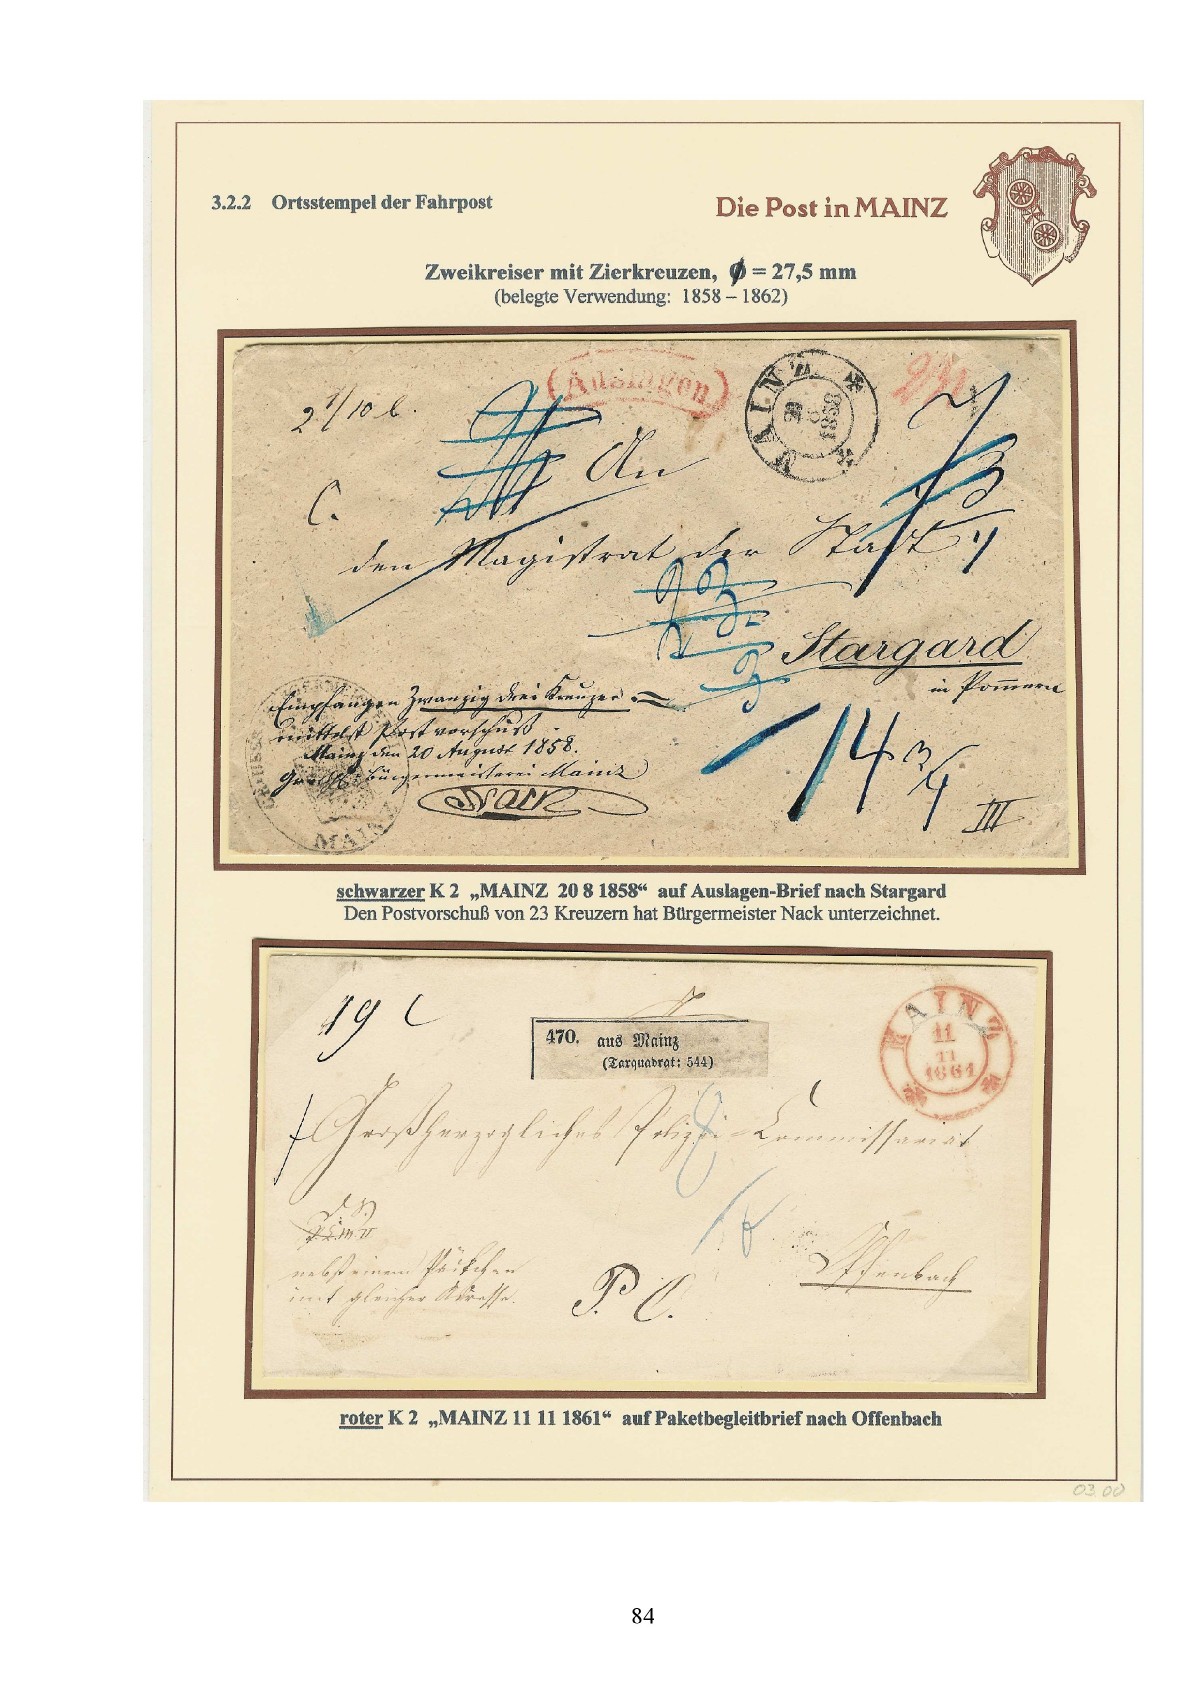 3.2.2 Ortsstempel der Fahrpost
Die Post in MAINZ
Zweikreiser mit Zierkreuzen, Ø = 27,5 mm
(belegte Verwendung: 1858 – 1862)
Auslagen
MAINZ
20
8
1858
2 1/10 l.
An
C.
den Magistrat der Stadt
Stargard
in Pommern
Empfangen Zwanzig drei Kreuzer
mittelst Postvorschuß
Mainz den 20 August 1858.
Bürgermeisterei Mainz
Nack
MAINZ
14 3/4
III
schwarzer K 2 „MAINZ 20 8 1858“ auf Auslagen-Brief nach Stargard
Den Postvorschuß von 23 Kreuzern hat Bürgermeister Nack unterzeichnet.
19 l
470. aus Mainz
(Tarquadrat: 544)
MAINZ
11
11
1861
Großherzogliches Polizei-Commissariat
nebst einem Päckchen
mit gleicher Adresse.
P. C.
Offenbach
roter K 2 „MAINZ 11 11 1861“ auf Paketbegleitbrief nach Offenbach
03.00
84